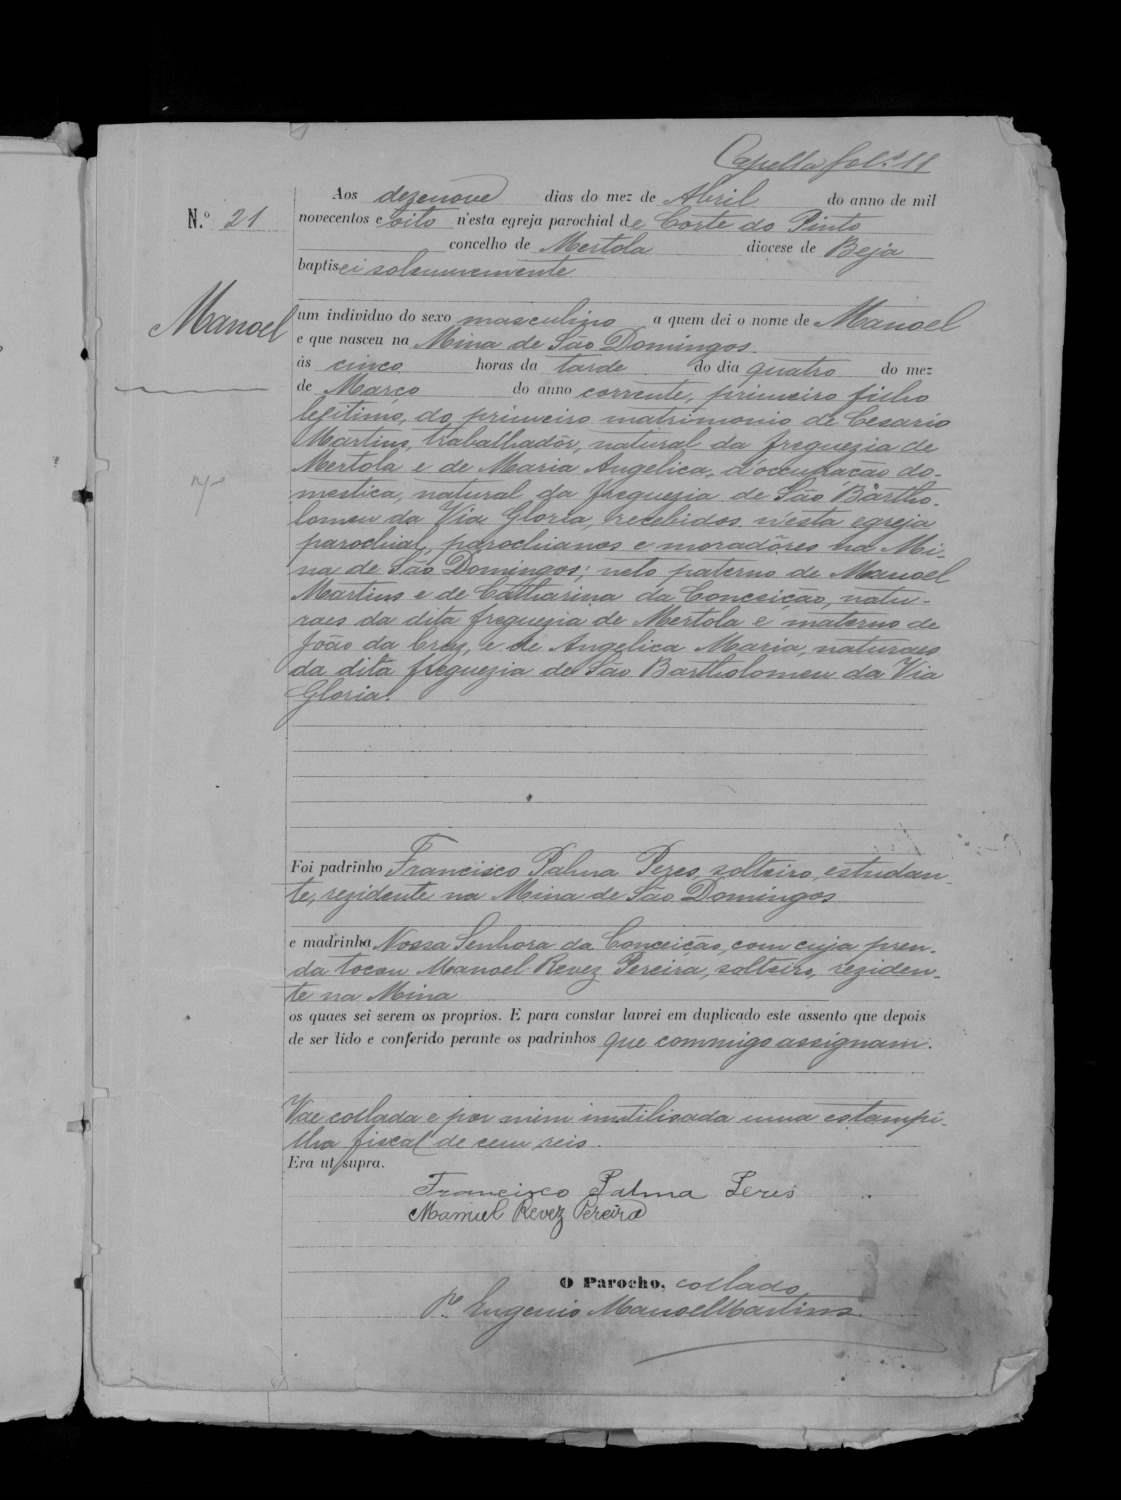 Capella fol. 11
Aos dezenove dias do mez de Abril do anno de mil
N.º 21
novecentos e oito n'esta egreja parochial de Corte do Pinto
concelho de Mertola diocese de Beja
baptisei solemnemente
Manoel
um individuo do sexo masculino a quem dei o nome de Manoel
e que nasceu na Mina de São Domingos.
ás cinco horas da tarde do dia quatro do mez
de Março do anno corrente, primeiro filho
legitimo, do primeiro matrimonio de Cesario
Martins, trabalhadôr, natural da freguezia de
Mertola e de Maria Angelica, d'occupação do-
mestica, natural da freguezia de São Bartho-
lomeu da Via Gloria, recebidos n'esta egreja
parochial, parochianos e moradôres na Mi-
na de São Domingos; neto paterno de Manoel
Martins e de Catharina da Conceição, natu-
raes da dita freguezia de Mertola e materno de
João da Cruz, e de Angelica Maria, naturaes
da dita freguezia de São Bartholomeu da Via
Gloria.
Foi padrinho Francisco Palma Peres, solteiro, estudan-
te, rezidente na Mina de São Domingos
e madrinha Nossa Senhora da Conceição, com cuja pren-
da tocou Manoel Revez Pereira, solteiro, reziden-
te na Mina
os quaes sei serem os proprios. E para constar lavrei em duplicado este assento que depois
de ser lido e conferido perante os padrinhos que commigo assignam.
Vae collada e por mim inutilisada uma estampi-
lha fiscal de cem reis.
Era ut supra.
Francisco Palma Peres
Manuel Revez Pereira
O Parocho, collado,
P.e Eugenio Manoel Martins